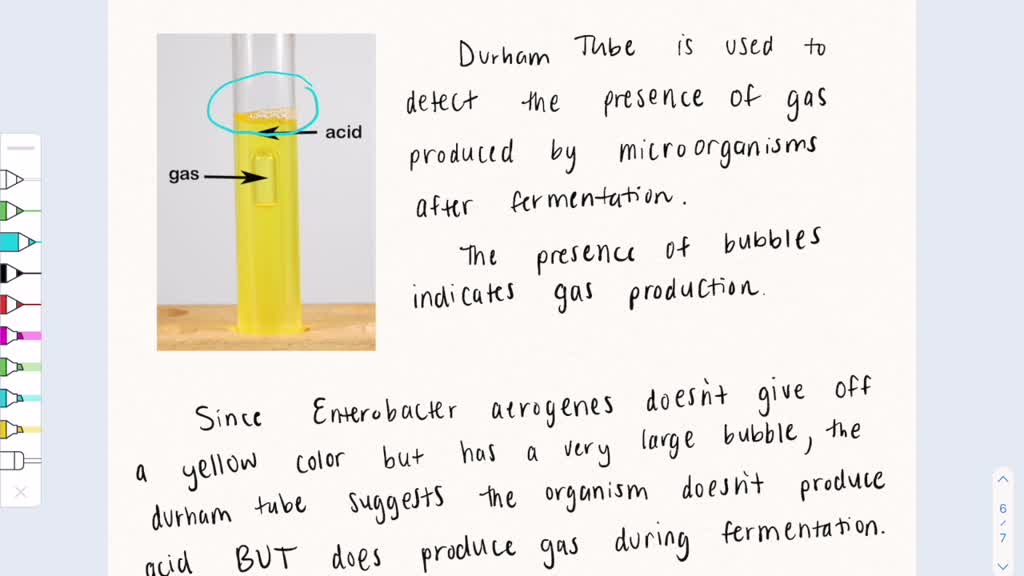 Durham Tube is used to
detect the presence of gas
produced by microorganisms
after fermentation.
The presence of bubbles
indicates gas production.
acid
gas
Since Enterobacter aerogenes doesn't give off
a yellow color but has a very large bubble, the
durham tube suggests the organism doesn't produce
acid BUT does produce gas during fermentation.
6
/
7